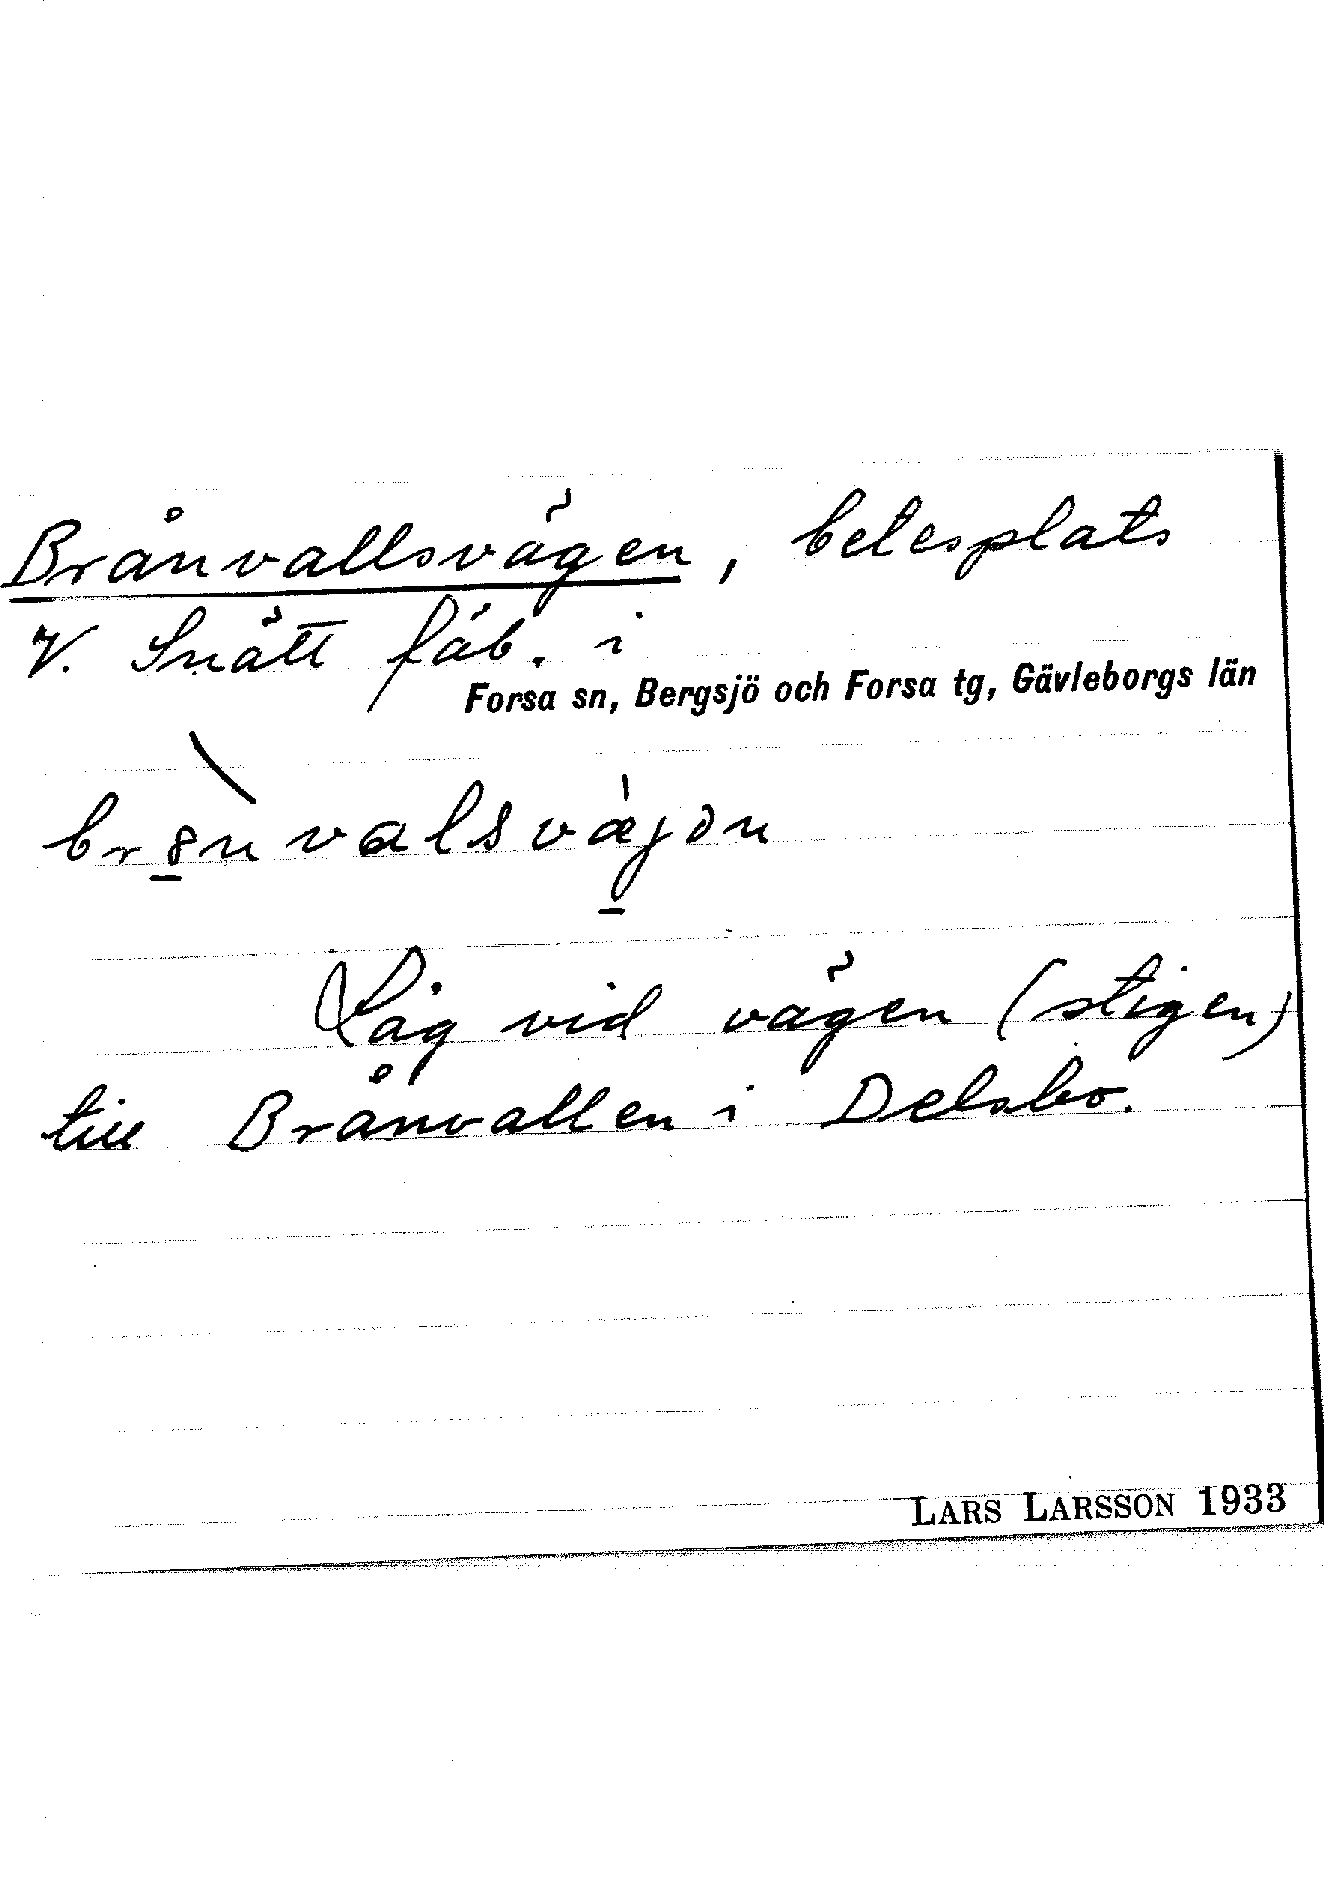 Brånvallsvägen, betesplats
V. Snätt fäb. i
Forsa sn, Bergsjö och Forsa tg, Gävleborgs län
Låg vid vägen (stigen)
till Brånvallen i Delsbo.
LARS LARSSON 1933